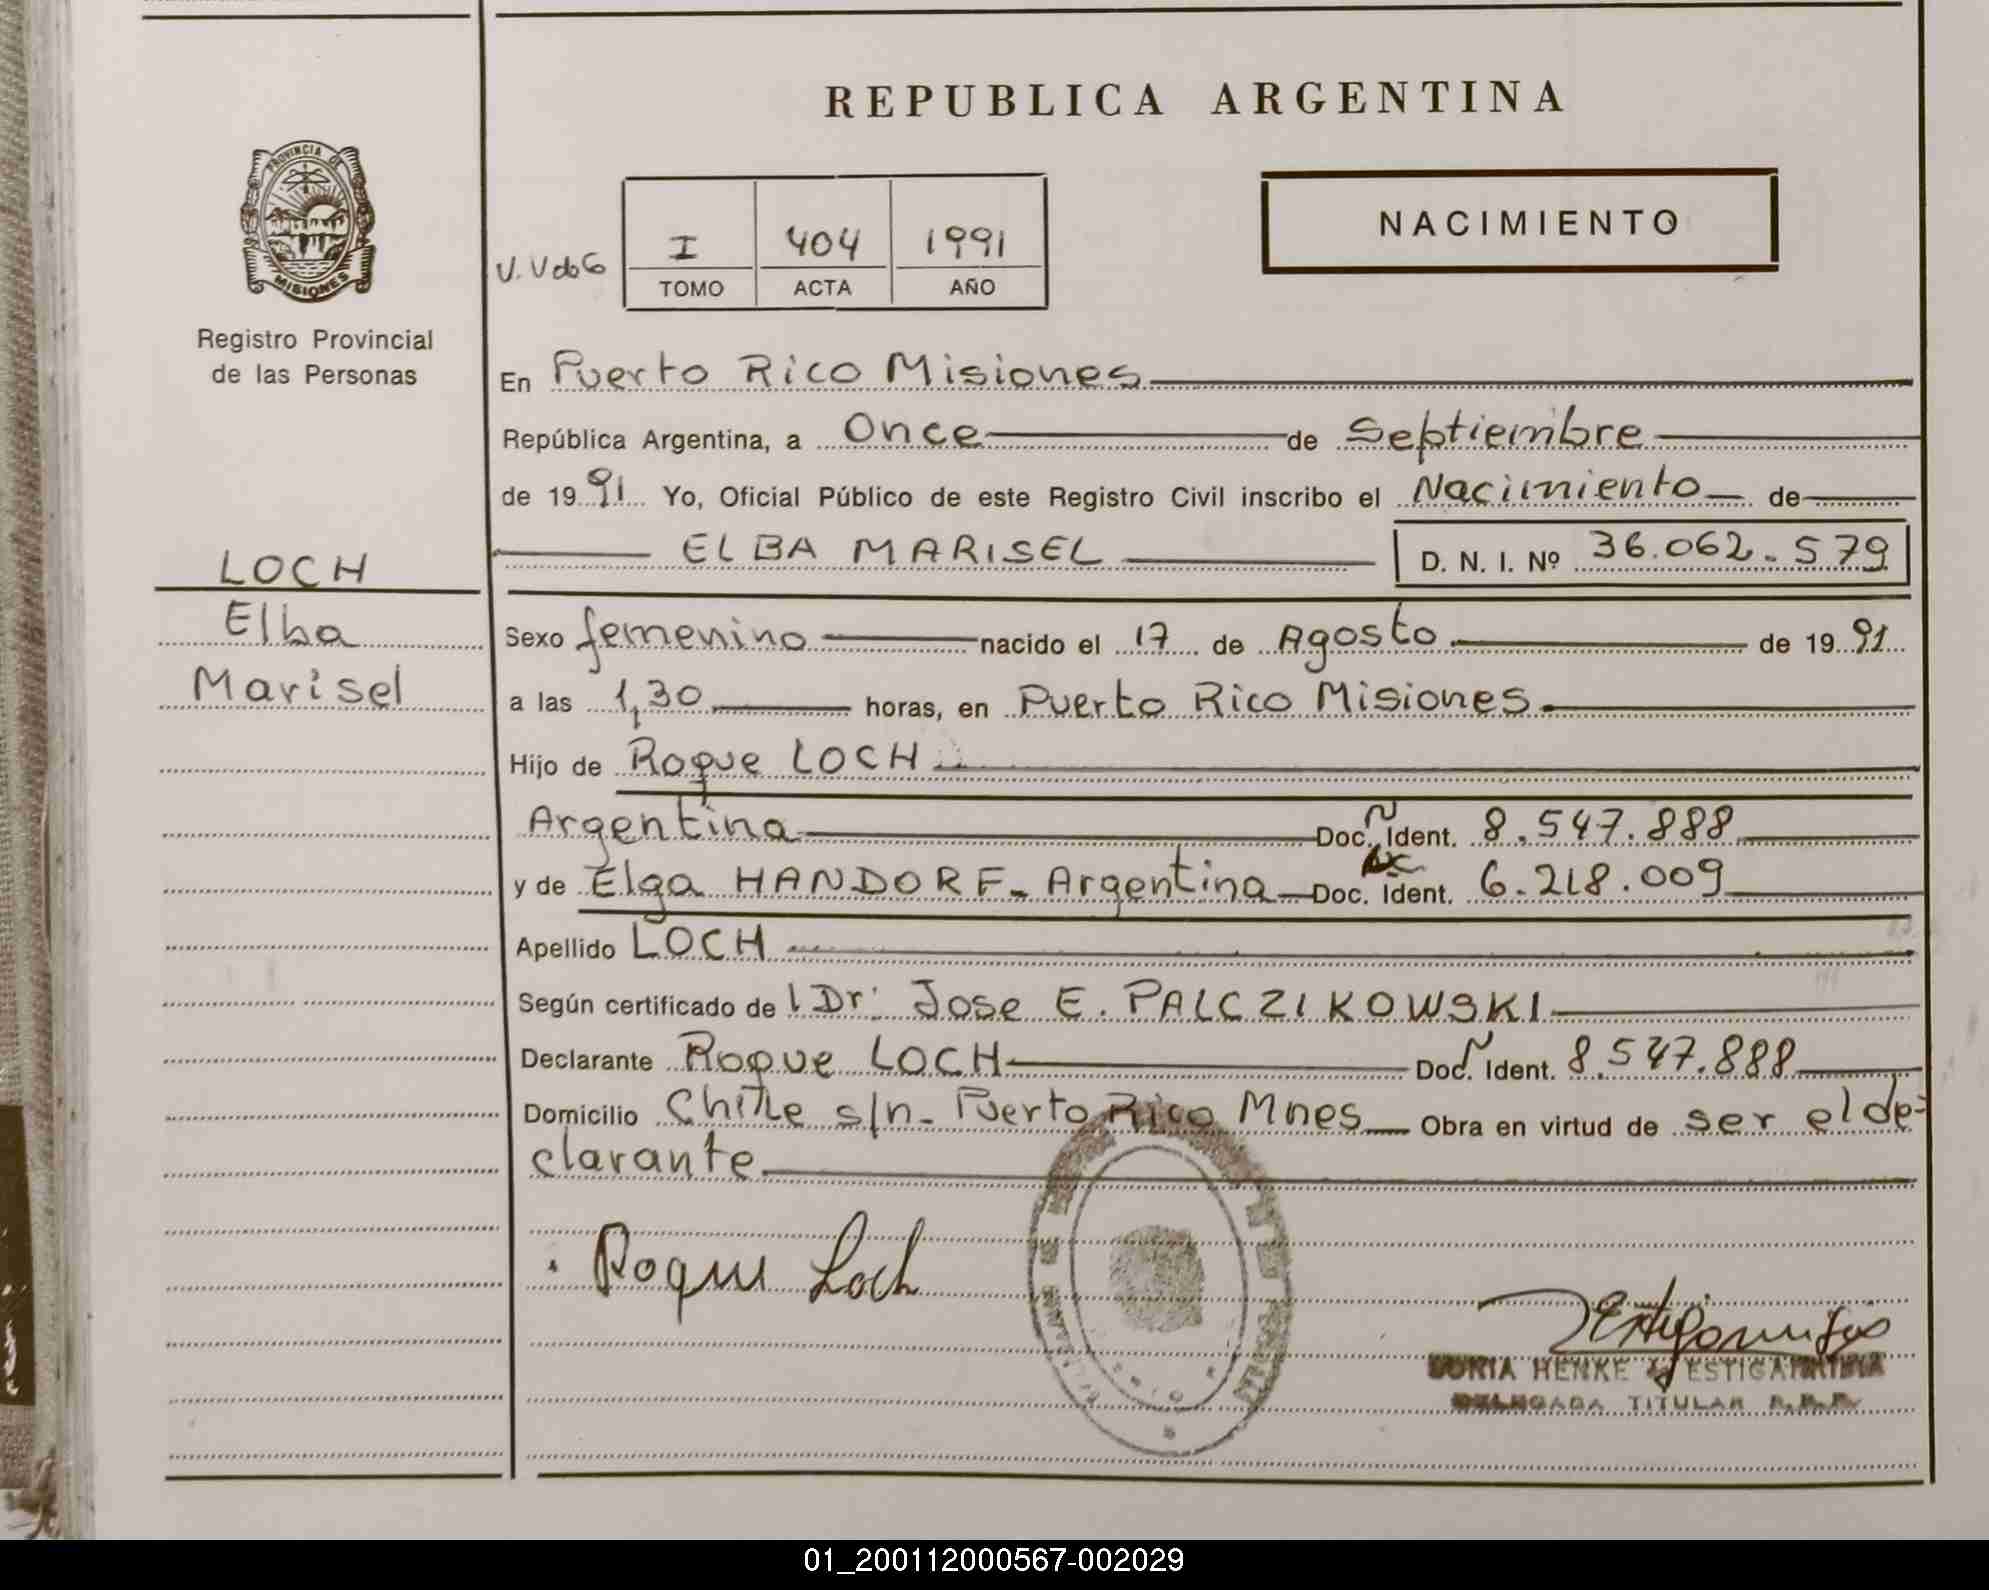 REPUBLICA ARGENTINA
PROVINCIA DE
MISIONES
Registro Provincial
de las Personas
NACIMIENTO
I 404 1991
TOMO ACTA AÑO
En Puerto Rico Misiones
República Argentina, a Once de Septiembre
de 1991 Yo, Oficial Público de este Registro Civil inscribo el Nacimiento de
ELBA MARISEL D. N. I. Nº 36.062.579
LOCH
Elba
Marisel
Sexo femenino nacido el 17 de Agosto de 1991
a las 1,30 horas, en Puerto Rico Misiones
Hijo de Roque LOCH
Argentina Doc. Ident. 8.547.888
y de Elga HANDORF - Argentina Doc. Ident. 6.218.009
Apellido LOCH
Según certificado de l Dr: Jose E. PALCZIKOWSKI
Declarante Roque LOCH Doc. Ident. 8.547.888
Domicilio Chile s/n - Puerto Rico Mnes Obra en virtud de ser el de-
clarante
Roque Loch
HENKE
TITULAR
01_200112000567-002029